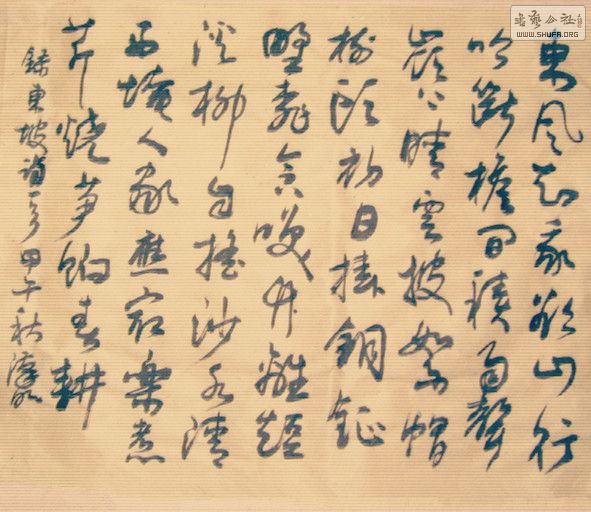 東風知我欲山行
吹斷檐間積雨聲
嶺上晴雲披絮帽
樹頭初日掛銅鉦
野桃含笑竹籬短
溪柳自搖沙水清
西崦人家應最樂煮
芹燒筍餉春耕
錄東坡詩 甲午秋
書藝公社
WWW.SHUFA.ORG